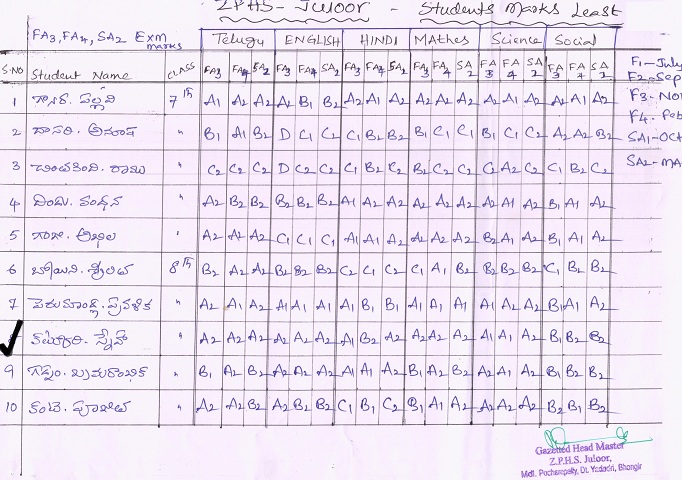 ZPHS - Juloor - Students Marks Least
FA3, FA4, SA2 Exm marks Telugu ENGLISH HINDI MAthes Science Social
S.NO Student Name CLASS FA3 FA4 SA2 FA3 FA4 SA2 FA3 FA4 SA2 FA3 FA4 SA2 FA3 FA4 SA2 FA3 FA4 SA2
F1 - July
F2 - Sep
F3 - Nov
F4 - Feb
SA1 - Oct
SA2 - MA
1 పల్లవి 7th A1 A2 A2 A2 B1 B2 A2 A1 A2 A2 A2 A2 A2 A1 A2 A2 A1 A2
2 దాసరి. అనూష " B1 A1 B2 D C1 C2 C1 B2 B2 B1 C1 C1 B1 C1 C2 A2 A2 B2
3 రాజు " C2 C2 C2 D C2 C2 C1 B2 C2 B2 C2 C2 C2 A2 C2 C1 B2 C2
4 " A2 B2 B2 B2 B2 B2 A1 A2 A2 A2 A2 A2 A2 A1 A2 B1 A1 A2
5 అఖిల " A2 A2 A2 C1 C1 C1 A1 A1 A2 A2 A2 A2 B2 A1 A2 B1 A1 A2
6 8th B2 A2 A2 B2 B2 B2 C2 C1 C2 C1 A1 B2 B2 B2 B2 C1 B2 B2
7 " A2 A1 A2 A1 A1 A1 A1 B1 B1 A1 A1 A1 A1 A2 A2 B1 A1 A2
" A2 A2 A2 A2 A2 A2 A1 B2 A2 A2 A2 A2 A1 A1 A2 B2 B2 B2
9 " B1 A2 B2 A2 A2 A2 A1 A1 A2 B1 A2 B2 A2 A1 A2 B1 B2 B2
10 " A2 A2 B2 A2 B2 B2 C1 B1 C2 B1 A1 A2 A2 A2 A2 B2 B1 B2
Gazetted Head Master
Z.P.H.S. Juloor,
Mdl. Pochampally, Dt. Yadadri, Bhongir